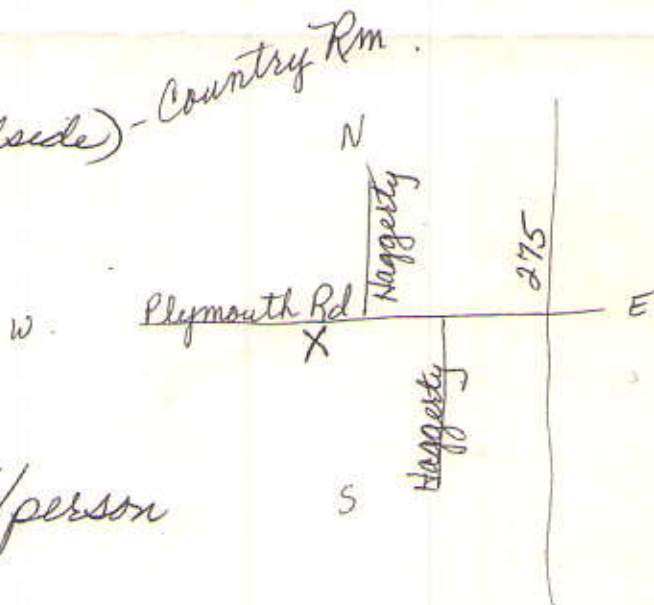 side) - Country Rm.
N
Haggerty
275
Plymouth Rd
W.
E
X
Haggerty
/person
S